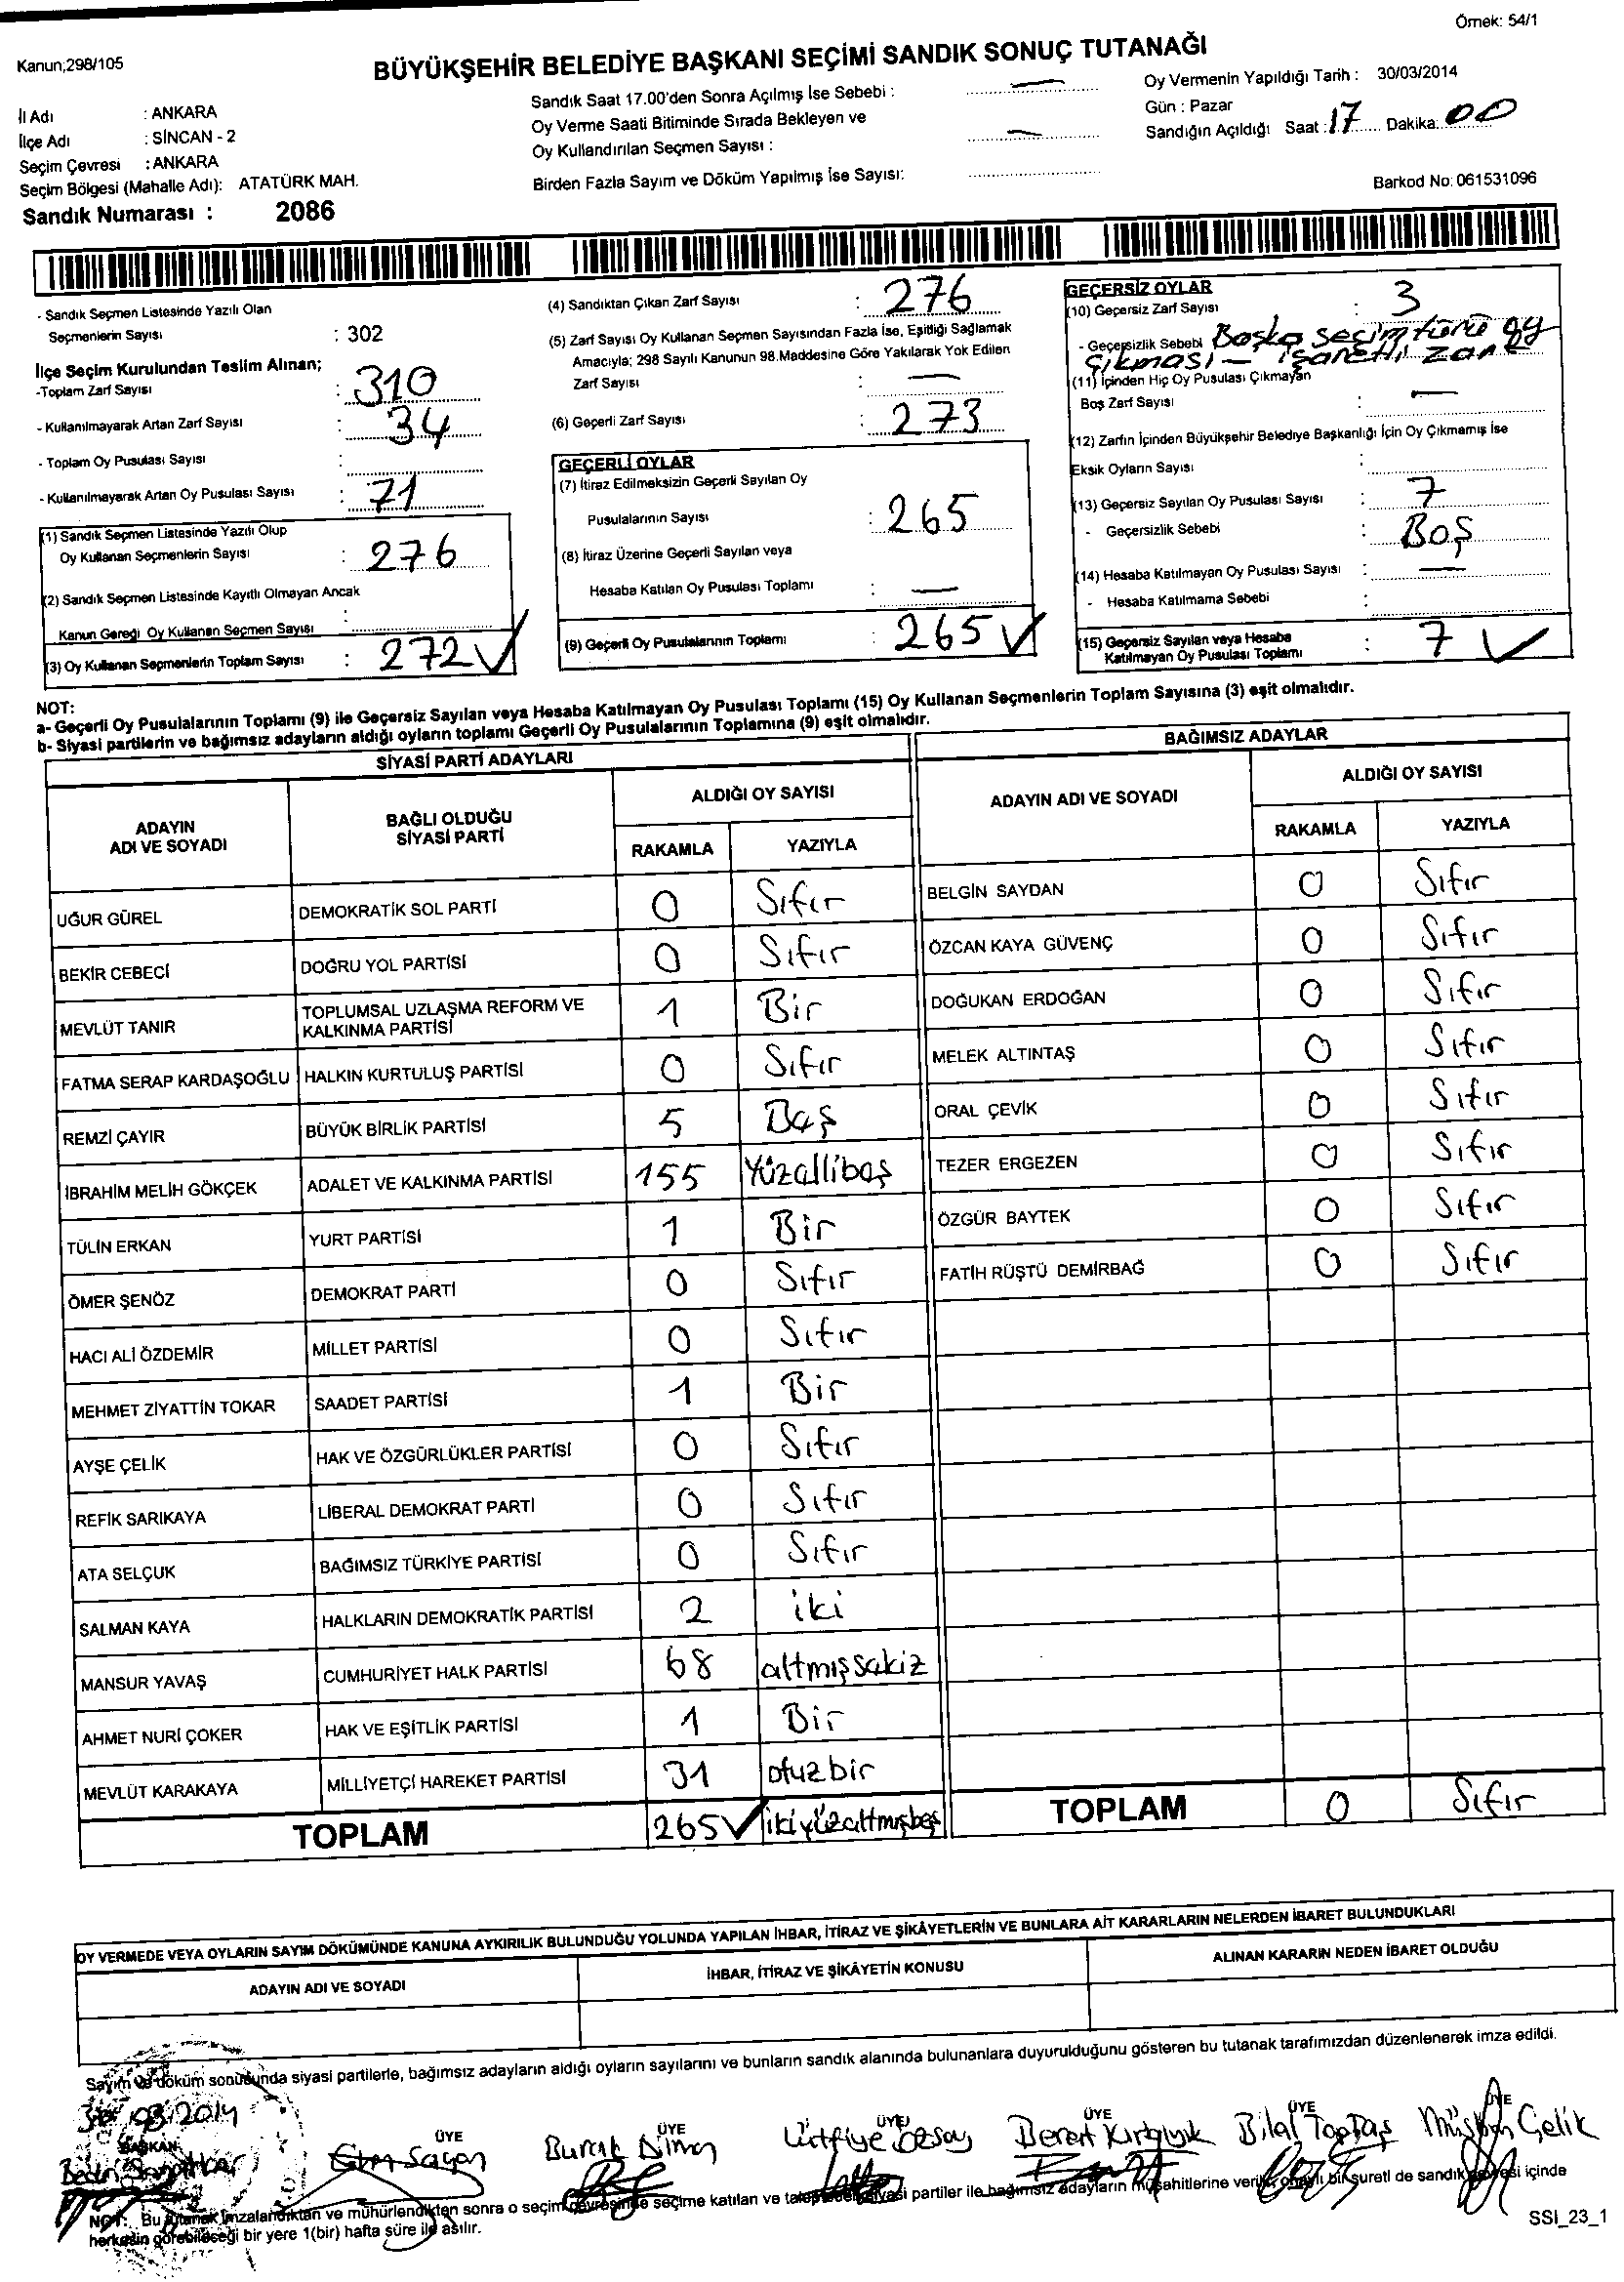 Örnek: 54/1
Kanun;298/105
BÜYÜKŞEHİR BELEDİYE BAŞKANI SEÇİMİ SANDIK SONUÇ TUTANAĞI
İl Adı : ANKARA
İlçe Adı : SİNCAN - 2
Seçim Çevresi : ANKARA
Seçim Bölgesi (Mahalle Adı): ATATÜRK MAH.
Sandık Numarası : 2086
Sandık Saat 17.00'den Sonra Açılmış İse Sebebi : —
Oy Verme Saati Bitiminde Sırada Bekleyen ve
Oy Kullandırılan Seçmen Sayısı : —
Birden Fazla Sayım ve Döküm Yapılmış İse Sayısı:
Oy Vermenin Yapıldığı Tarih : 30/03/2014
Gün : Pazar
Sandığın Açıldığı Saat : 17 Dakika: 00
Barkod No: 061531096
- Sandık Seçmen Listesinde Yazılı Olan
Seçmenlerin Sayısı : 302
İlçe Seçim Kurulundan Teslim Alınan;
-Toplam Zarf Sayısı : 310
- Kullanılmayarak Artan Zarf Sayısı : 34
- Toplam Oy Pusulası Sayısı :
- Kullanılmayarak Artan Oy Pusulası Sayısı : 71
(1) Sandık Seçmen Listesinde Yazılı Olup
Oy Kullanan Seçmenlerin Sayısı : 276
(2) Sandık Seçmen Listesinde Kayıtlı Olmayan Ancak
Kanun Gereği Oy Kullanan Seçmen Sayısı :
(3) Oy Kullanan Seçmenlerin Toplam Sayısı : 272 ✓
(4) Sandıktan Çıkan Zarf Sayısı : 276
(5) Zarf Sayısı Oy Kullanan Seçmen Sayısından Fazla İse, Eşitliği Sağlamak
Amacıyla; 298 Sayılı Kanunun 98.Maddesine Göre Yakılarak Yok Edilen
Zarf Sayısı : —
(6) Geçerli Zarf Sayısı : 273
GEÇERLİ OYLAR
(7) İtiraz Edilmeksizin Geçerli Sayılan Oy
Pusulalarının Sayısı : 265
(8) İtiraz Üzerine Geçerli Sayılan veya
Hesaba Katılan Oy Pusulası Toplamı : —
(9) Geçerli Oy Pusulalarının Toplamı : 265 ✓
GEÇERSİZ OYLAR
(10) Geçersiz Zarf Sayısı : 3
- Geçersizlik Sebebi Başka seçim türü oy
çıkması – işaretli zarf
(11) İçinden Hiç Oy Pusulası Çıkmayan
Boş Zarf Sayısı : —
(12) Zarfın İçinden Büyükşehir Belediye Başkanlığı İçin Oy Çıkmamış İse
Eksik Oyların Sayısı :
(13) Geçersiz Sayılan Oy Pusulası Sayısı : 7
- Geçersizlik Sebebi : Boş
(14) Hesaba Katılmayan Oy Pusulası Sayısı : —
- Hesaba Katılmama Sebebi :
(15) Geçersiz Sayılan veya Hesaba
Katılmayan Oy Pusulası Toplamı : 7 ✓
NOT:
a- Geçerli Oy Pusulalarının Toplamı (9) ile Geçersiz Sayılan veya Hesaba Katılmayan Oy Pusulası Toplamı (15) Oy Kullanan Seçmenlerin Toplam Sayısına (3) eşit olmalıdır.
b- Siyasi partilerin ve bağımsız adayların aldığı oyların toplamı Geçerli Oy Pusulalarının Toplamına (9) eşit olmalıdır.
SİYASİ PARTİ ADAYLARI
ADAYIN ADI VE SOYADI BAĞLI OLDUĞU SİYASİ PARTİ ALDIĞI OY SAYISI
RAKAMLA YAZIYLA
UĞUR GÜREL DEMOKRATİK SOL PARTİ 0 Sıfır
BEKİR CEBECİ DOĞRU YOL PARTİSİ 0 Sıfır
MEVLÜT TANIR TOPLUMSAL UZLAŞMA REFORM VE KALKINMA PARTİSİ 1 Bir
FATMA SERAP KARDAŞOĞLU HALKIN KURTULUŞ PARTİSİ 0 Sıfır
REMZİ ÇAYIR BÜYÜK BİRLİK PARTİSİ 5 Beş
İBRAHİM MELİH GÖKÇEK ADALET VE KALKINMA PARTİSİ 155 Yüzellibeş
TÜLİN ERKAN YURT PARTİSİ 1 Bir
ÖMER ŞENÖZ DEMOKRAT PARTİ 0 Sıfır
HACI ALİ ÖZDEMİR MİLLET PARTİSİ 0 Sıfır
MEHMET ZİYATTİN TOKAR SAADET PARTİSİ 1 Bir
AYŞE ÇELİK HAK VE ÖZGÜRLÜKLER PARTİSİ 0 Sıfır
REFİK SARIKAYA LİBERAL DEMOKRAT PARTİ 0 Sıfır
ATA SELÇUK BAĞIMSIZ TÜRKİYE PARTİSİ 0 Sıfır
SALMAN KAYA HALKLARIN DEMOKRATİK PARTİSİ 2 iki
MANSUR YAVAŞ CUMHURİYET HALK PARTİSİ 68 altmışsekiz
AHMET NURİ ÇOKER HAK VE EŞİTLİK PARTİSİ 1 Bir
MEVLÜT KARAKAYA MİLLİYETÇİ HAREKET PARTİSİ 31 otuzbir
TOPLAM 265 ✓ ikiyüzaltmışbeş
BAĞIMSIZ ADAYLAR
ADAYIN ADI VE SOYADI ALDIĞI OY SAYISI
RAKAMLA YAZIYLA
BELGİN SAYDAN 0 Sıfır
ÖZCAN KAYA GÜVENÇ 0 Sıfır
DOĞUKAN ERDOĞAN 0 Sıfır
MELEK ALTINTAŞ 0 Sıfır
ORAL ÇEVİK 0 Sıfır
TEZER ERGEZEN 0 Sıfır
ÖZGÜR BAYTEK 0 Sıfır
FATİH RÜŞTÜ DEMİRBAĞ 0 Sıfır
TOPLAM 0 Sıfır
OY VERMEDE VEYA OYLARIN SAYIM DÖKÜMÜNDE KANUNA AYKIRILIK BULUNDUĞU YOLUNDA YAPILAN İHBAR, İTİRAZ VE ŞİKÂYETLERİN VE BUNLARA AİT KARARLARIN NELERDEN İBARET BULUNDUKLARI
ADAYIN ADI VE SOYADI İHBAR, İTİRAZ VE ŞİKÂYETİN KONUSU ALINAN KARARIN NEDEN İBARET OLDUĞU
Sayım ve döküm sonucunda siyasi partilerle, bağımsız adayların aldığı oyların sayılarını ve bunların sandık alanında bulunanlara duyurulduğunu gösteren bu tutanak tarafımızdan düzenlenerek imza edildi.
30/03/2014
BAŞKAN ÜYE ÜYE ÜYE ÜYE ÜYE ÜYE
Burak Bilal Toptaş Çelik
NOT: Bu tutanak imzalandıktan ve mühürlendikten sonra o seçim çevresinde seçime katılan ve talep eden siyasi partiler ile bağımsız adayların müşahitlerine verilir, onaylı bir sureti de sandık çevresi içinde
herkesin görebileceği bir yere 1(bir) hafta süre ile asılır.
SSİ_23_1